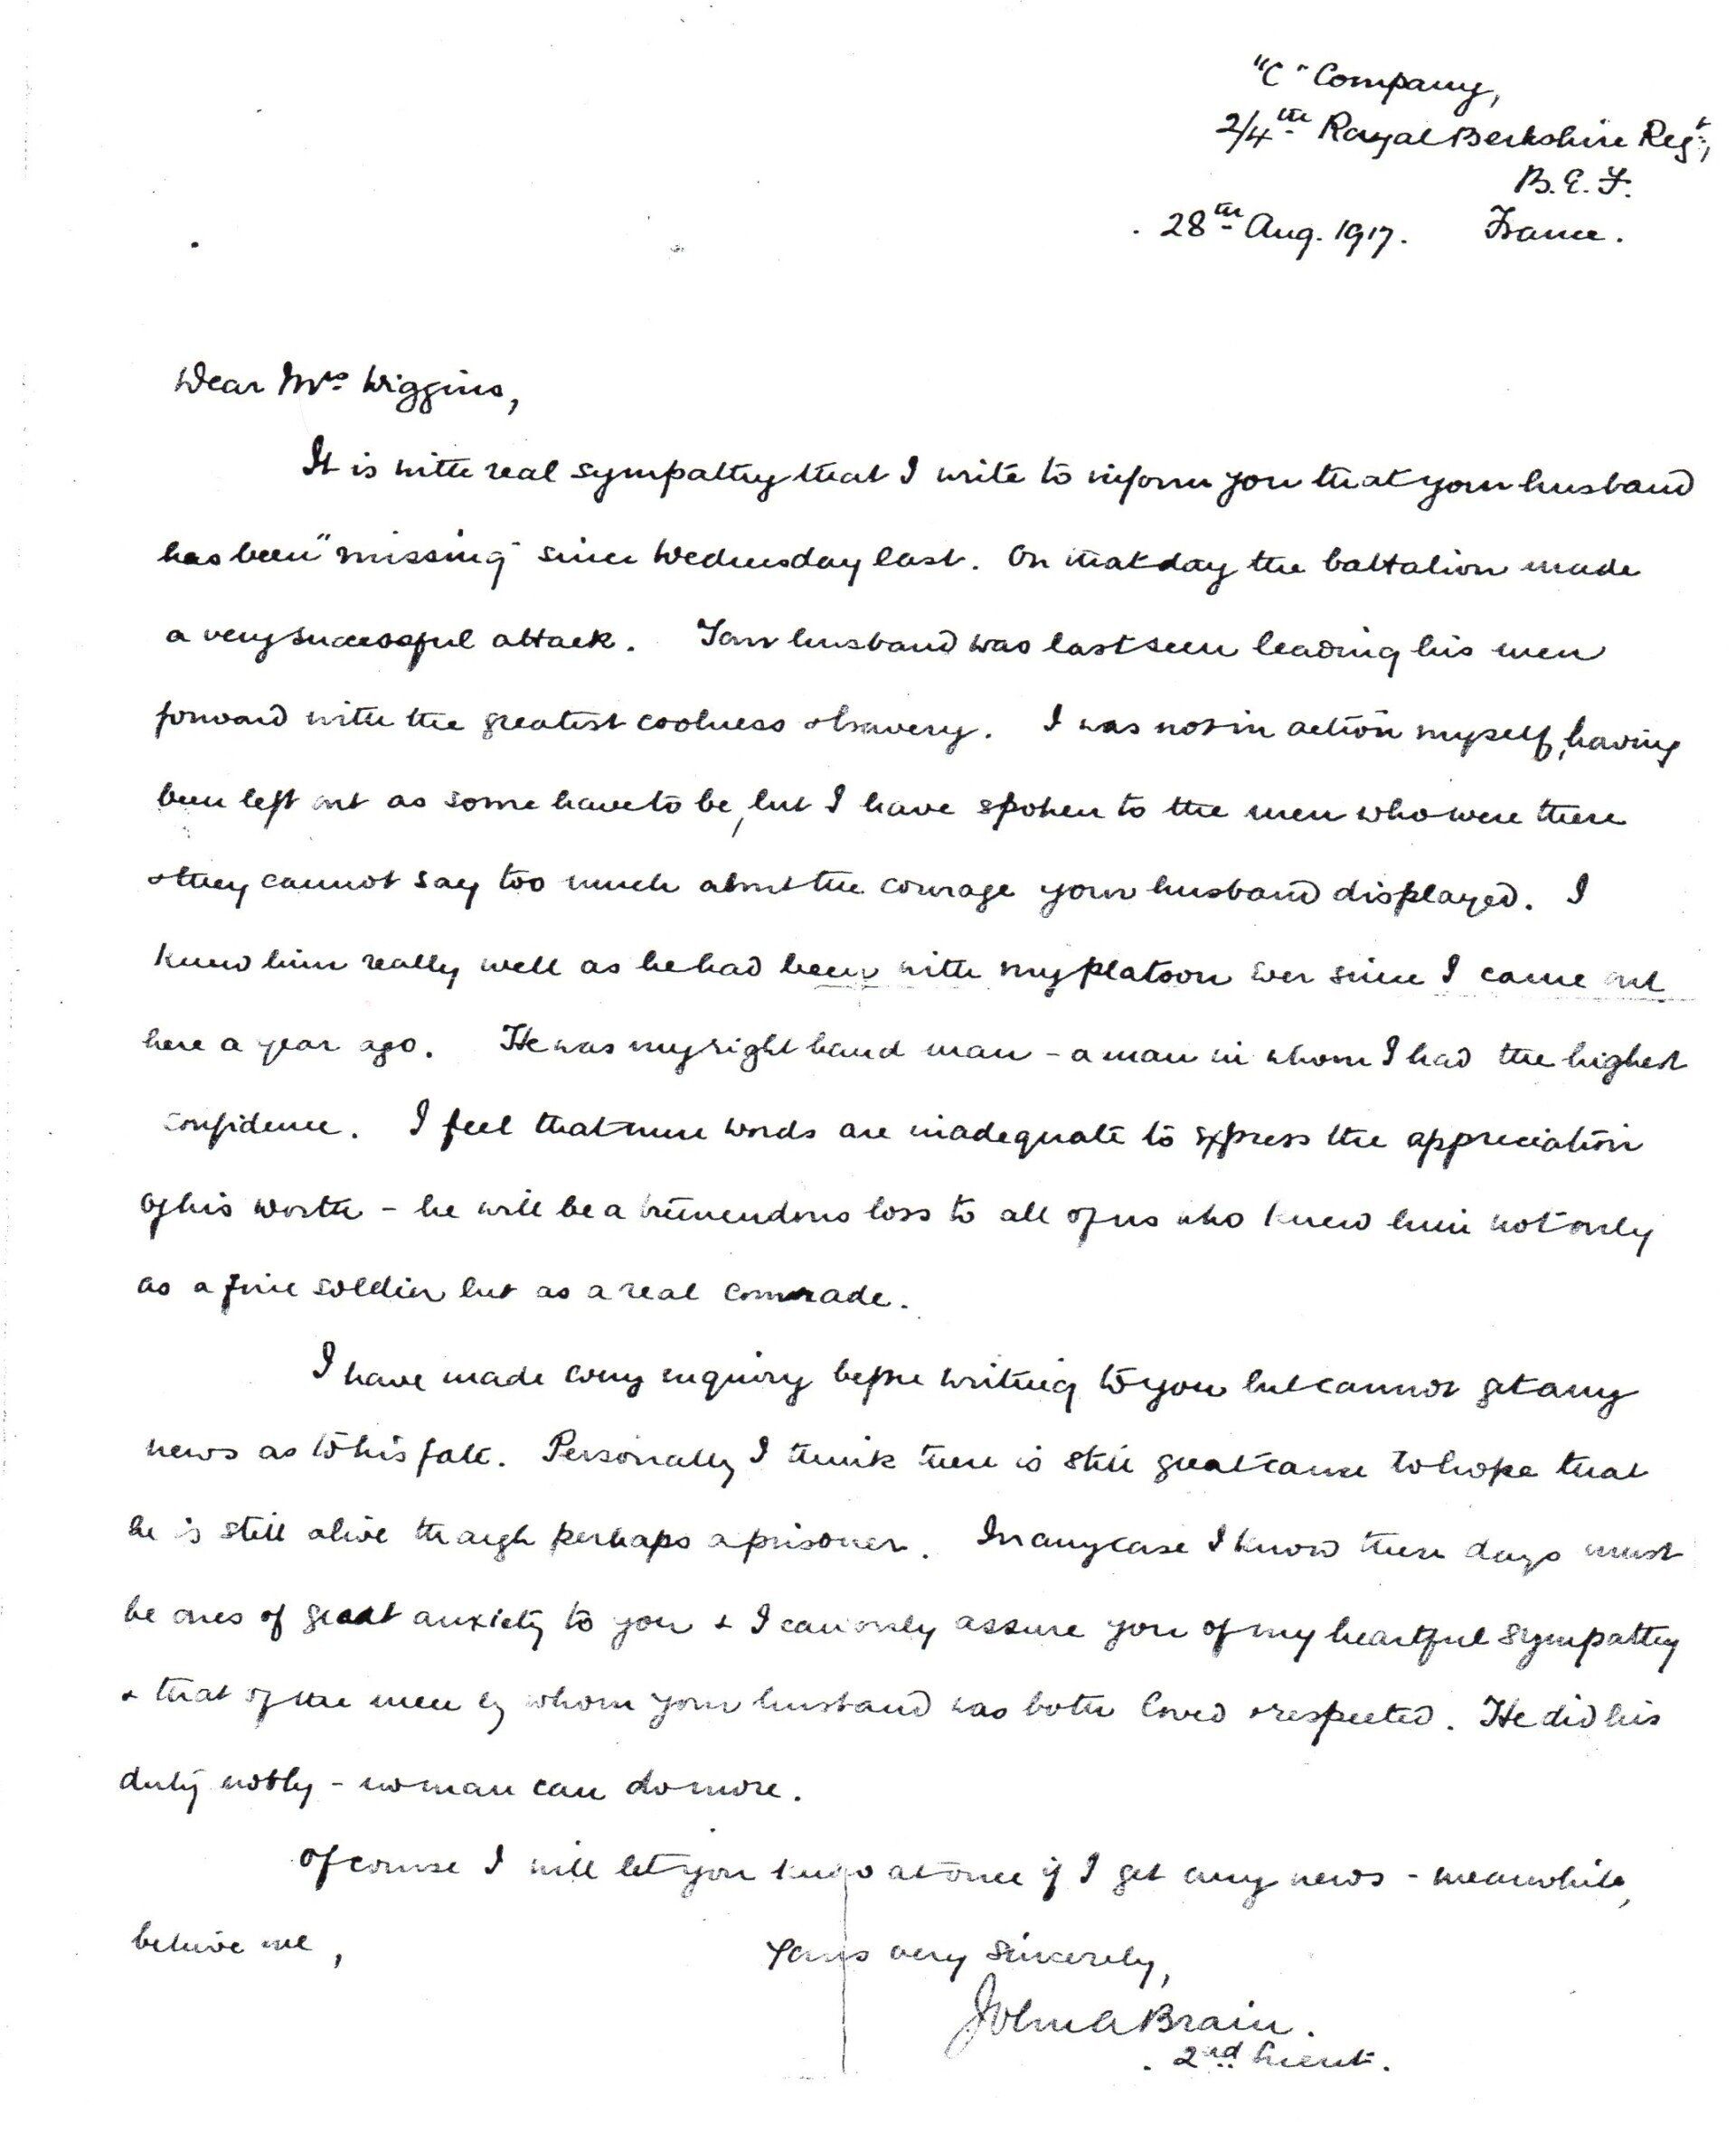 "C" Company,
2/4th Royal Berkshire Regt,
B.E.F.
28th Aug. 1917. France.
Dear Mrs Wiggins,
It is with real sympathy that I write to inform you that your husband
has been "missing" since Wednesday last. On that day the battalion made
a very successful attack. Your husband was last seen leading his men
forward with the greatest coolness & bravery. I was not in action myself, having
been left out as some have to be, but I have spoken to the men who were there
& they cannot say too much about the courage your husband displayed. I
knew him really well as he had been with my platoon ever since I came out
here a year ago. He was my right hand man - a man in whom I had the highest
confidence. I feel that mere words are inadequate to express the appreciation
of his worth - he will be a tremendous loss to all of us who knew him not only
as a fine soldier but as a real comrade.
I have made every inquiry before writing to you but cannot get any
news as to his fate. Personally I think there is still great cause to hope that
he is still alive though perhaps a prisoner. In any case I know these days must
be ones of great anxiety to you & I can only assure you of my heartful sympathy
& that of the men by whom your husband was both loved & respected. He did his
duty nobly - no man can do more.
Of course I will let you know at once if I get any news - meanwhile,
believe me, Yours very sincerely,
John A Brain.
2nd Lieut.